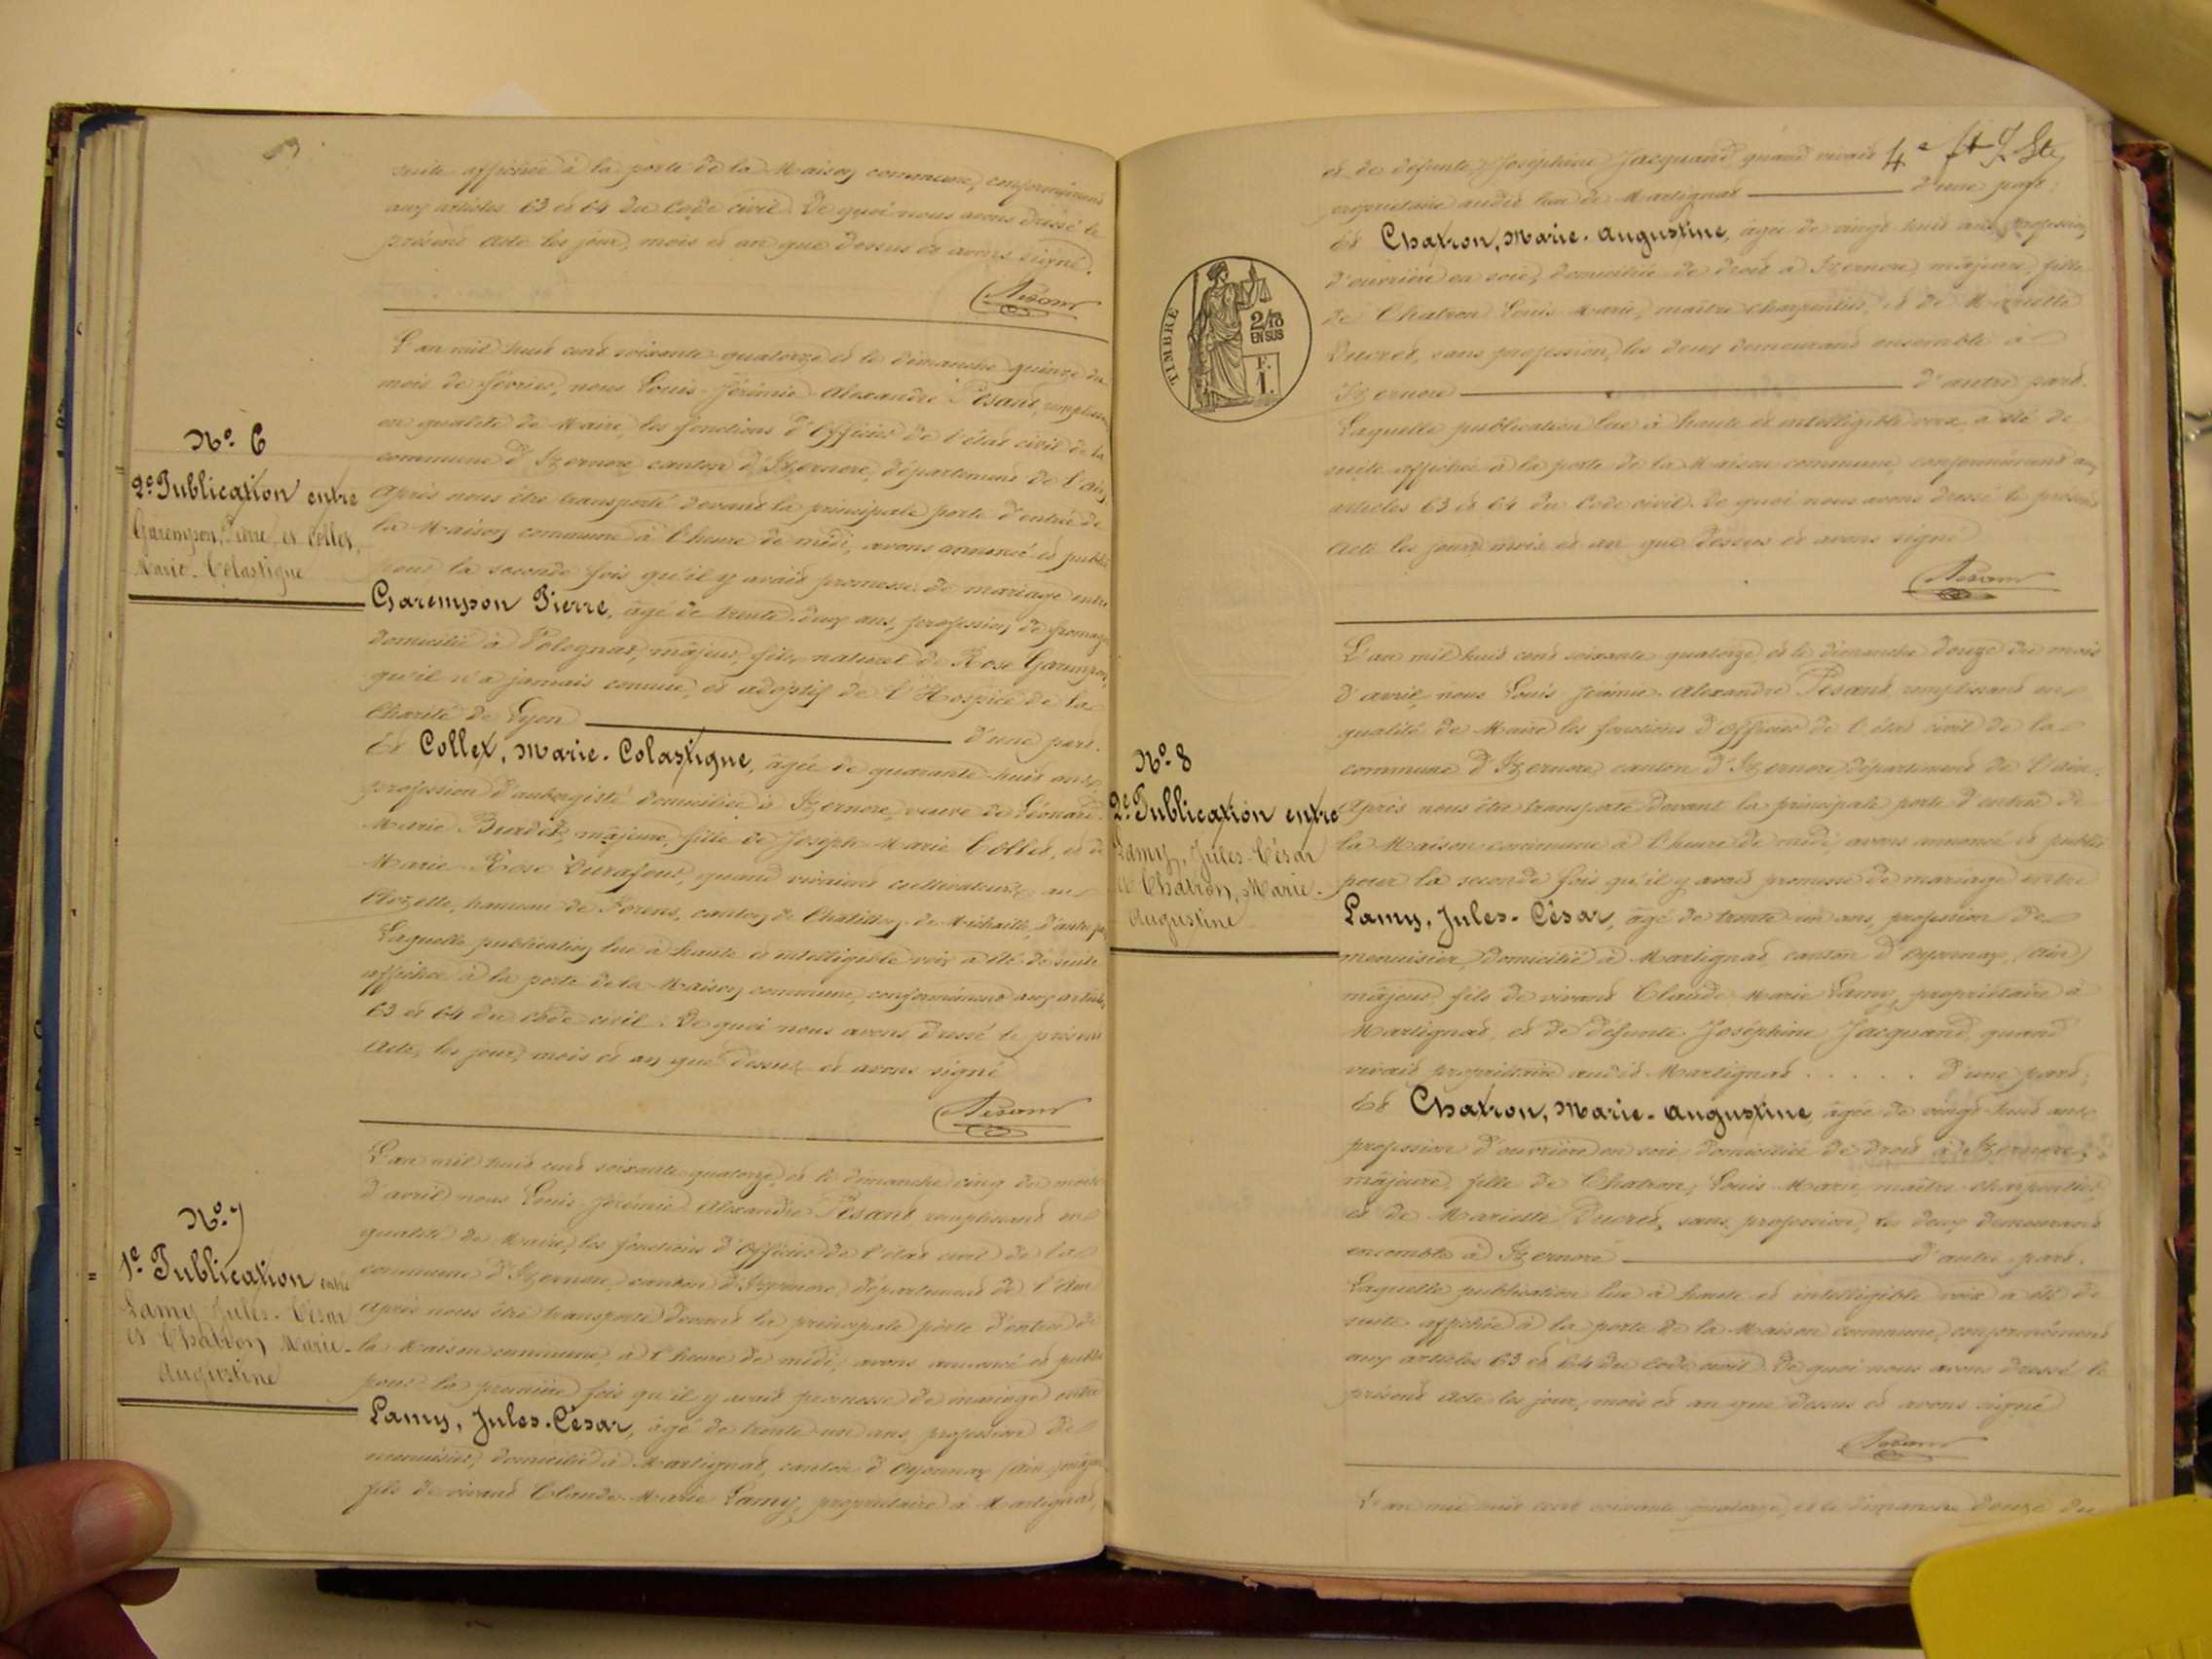 suite affichée à la porte de la Maison commune, conformément
aux articles 63 et 64 du Code civil. De quoi nous avons dressé le
présent acte les jour, mois et an que dessus et avons signé.
Pesant
L'an mil huit cent soixante quatorze et le dimanche quinze du
mois de février, nous Louis-Jérémie-Alexandre Pesant, remplissant
en qualité de Maire, les fonctions d'Officier de l'état civil de la
commune d'Izernore canton d'Izernore, département de l'ain,
N° 6
2e Publication entre
Garempon, Pierre, et Collet,
Marie-Colastique
Après nous être transporté devant la principale porte d'entrée de
la Maison commune à l'heure de midi, avons annoncé et publié
pour la seconde fois qu'il y avait promesse de mariage entre
Garempon Pierre, âgé de trente-deux ans, profession de fromager
domicilié à Volognat, majeur, fils naturel de Rose Garempon,
qu'il n'a jamais connue, et adoptif de l'Hospice de la
Charité de Lyon d'une part.
Et Collet, Marie-Colastique, âgée de quarante-huit ans,
profession d'aubergiste domiciliée à Izernore, veuve de Léonard
Marie Burdet, majeure, fille de Joseph-Marie Collet, et de
Marie-Rose Durafour, quand vivaient cultivateurs au
hameau de Forens, canton de Chatillon-de-Michaille, d'autre part
Laquelle publication lue à haute et intelligible voix a été de suite
affichée à la porte de la Maison commune, conformément aux articles
63 et 64 du code civil. De quoi nous avons dressé le présent
Acte, les jour, mois et an que dessus et avons signé
Pesant
L'an mil huit cent soixante-quatorze, et le dimanche cinq du mois
d'avril nous Louis-Jérémie Alexandre Pesant remplissant en
qualité de Maire, les fonctions d'Officier de l'état civil de la
commune d'Izernore, canton d'Izernore, département de l'Ain
N° 7
1e Publication entre
Lamy Jules-César
et Chatron Marie-
Augustine
Après nous être transporté devant la principale porte d'entrée de
la Maison commune, à l'heure de midi, avons annoncé et publié
pour la première fois qu'il y avait promesse de mariage entre
Lamy, Jules-César, âgé de trente-un ans, profession de
menuisier, domicilié à Martignat, canton d'Oyonnax (Ain) majeur
fils de vivant Claude-Marie Lamy, propriétaire à Martignat,
4e ft
et de défunte Joséphine Jacquand, quand vivait
propriétaire audit lieu de Martignat d'une part;
Et Chatron, Marie-Augustine, âgée de vingt-huit ans, profession
d'ouvrière en soie, domiciliée de droit à Izernore, majeure, fille
de Chatron Louis-Marie, maître charpentier, et de Mariette
Ducret, sans profession, les deux demeurant ensemble à
Izernore d'autre part.
TIMBRE
2/10
EN SUS
F.
1.
Laquelle publication lue à haute et intelligible voix a été de
suite affichée à la porte de la Maison commune, conformément aux
articles 63 et 64 du Code civil. De quoi nous avons dressé le présent
Acte les jour, mois et an que dessus et avons signé
Pesant
L'an mil huit cent soixante quatorze, et le dimanche douze du mois
d'avril, nous Louis-Jérémie-Alexandre Pesant remplissant en
qualité de Maire les fonctions d'Officier de l'état civil de la
commune d'Izernore, canton d'Izernore, département de l'Ain.
N° 8
2e Publication entre
Lamy, Jules-César
et Chatron, Marie-
Augustine
Après nous être transporté devant la principale porte d'entrée de
la Maison commune à l'heure de midi avons annoncé et publié
pour la seconde fois qu'il y avait promesse de mariage entre
Lamy, Jules-César, âgé de trente-un ans, profession de
menuisier, domicilié à Martignat, canton d'Oyonnax, (Ain)
majeur, fils de vivant Claude Marie Lamy, propriétaire à
Martignat, et de défunte Joséphine Jacquand, quand
vivait propriétaire audit Martignat ..... d'une part;
Et Chatron, Marie-Augustine, âgée de vingt-huit ans,
profession d'ouvrière en soie, domiciliée de droit à Izernore;
majeure, fille de Chatron, Louis-Marie, maître charpentier,
et de Mariette Ducret, sans profession, les deux demeurant
ensemble à Izernore d'autre part.
Laquelle publication lue à haute et intelligible voix a été de
suite affichée à la porte de la Maison commune, conformément
aux articles 63 et 64 du Code civil. De quoi nous avons dressé le
présent Acte les jour, mois et an que dessus et avons signé
Pesant
L'an mil huit cent soixante quatorze, et le dimanche douze du